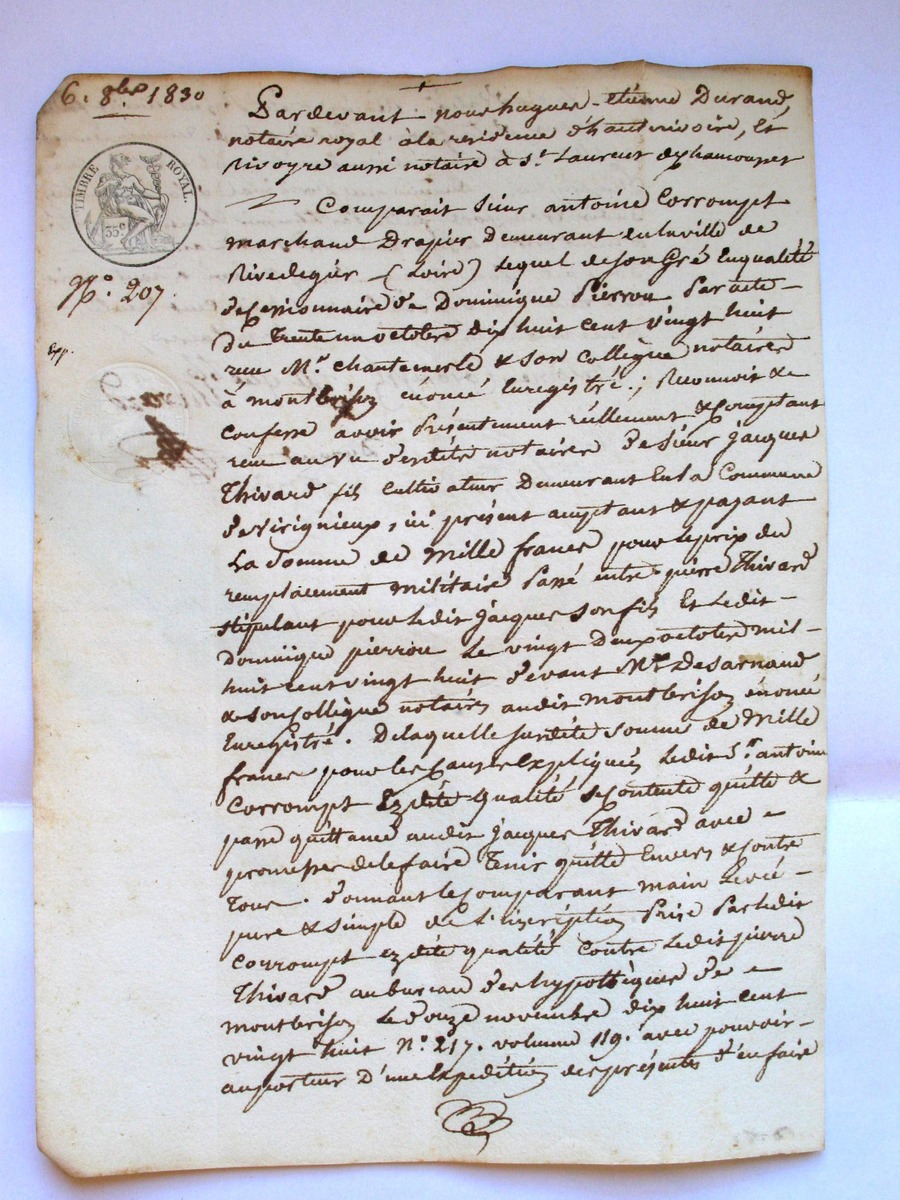 6. 8bre 1830
TIMBRE ROYAL.
35c
No. 207.
Exp.
Pardevant nous hugues-etienne Durand,
notaire royal à la residence d'hauterivoire, Et
Rivoyre aussi notaire à St. Laurent de chamousset
Comparait Sieur antoine Corrompt
marchand Drapier Demeurant en la ville de
Rivedegier (Loire) Lequel de son Gré En qualité
de cessionnaire de Dominique Pierrou Par acte
du Trente un octobre dix huit cent vingt huit
reçu Mr. chantemerle & son collegue notaires
à montbrison énoncé Enregistré.; Reconnoit &
confesse avoir Présentement réellement & Comptant
reçu au vu desdits notaires de Sieur Jacques
Thivard fils cultivateur Demeurant En la Commune
de Virignieux, ici présent acceptant & payant
La Somme de Mille francs pour le prix du
remplacement militaire Passé entre pierre Thivard
stipulant pour ledit Jacques Son fils Et Ledit
Dominique pierrou Le vingt Deux octobre mil
huit cent vingt huit devant Mre Desarnaud
& son Collègue notaires audit montbrison énoncé
Enregistré. De laquelle susdite somme de Mille
francs pour les causes Expliquées Ledit Sr. antoine
Corrompt Ezdite qualité se Contente quitte &
passe quittance audit Jacques Thivard avec
promesse de le faire Tenir quitte Envers & contre
Tous. donnant le Comparant main Levée
pure & simple de L'inscription Prise Par Ledit
Corrompt ezdite qualité contre Ledit pierre
Thivard au bureau des hypothèques de
montbrison Le douze novembre dix huit cent
vingt huit No. 217. volume 119. avec pouvoir
au porteur D'une Expédition des présentes d'en faire